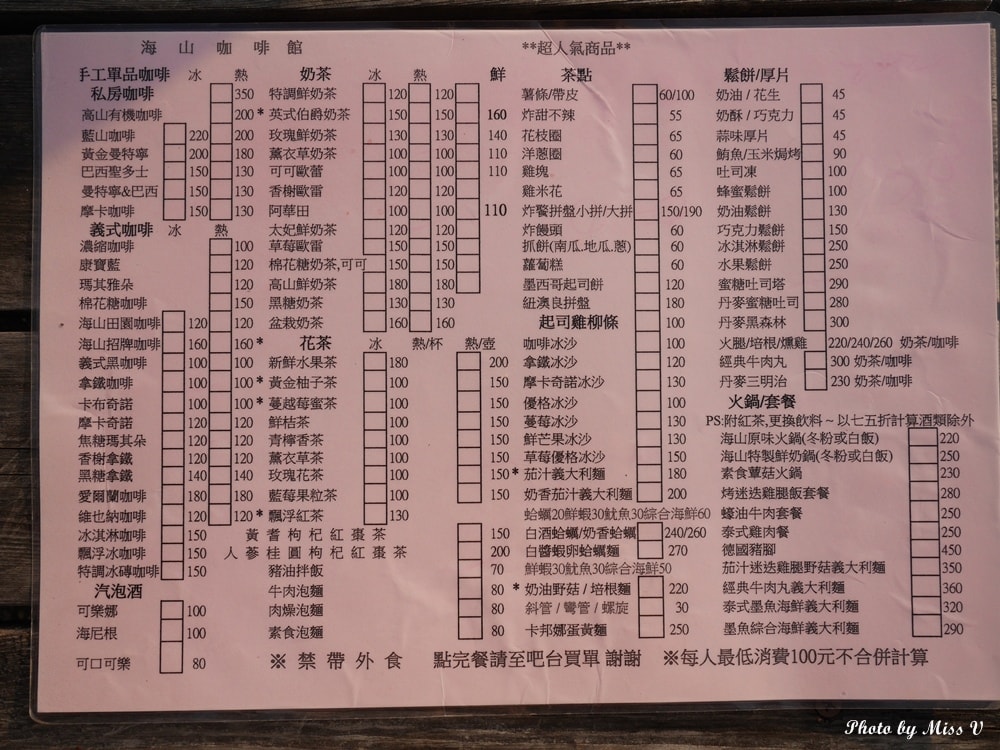 海山咖啡館
**超人氣商品**
手工單品咖啡 冰 熱
私房咖啡 350
高山有機咖啡 200
藍山咖啡 220 200
黃金曼特寧 200 180
巴西聖多士 150 130
曼特寧&巴西 150 130
摩卡咖啡 150 130
義式咖啡 冰 熱
濃縮咖啡 100
康寶藍 120
瑪其雅朵 120
棉花糖咖啡 150
海山田園咖啡 120 120
海山招牌咖啡 160 160
義式黑咖啡 100 100
拿鐵咖啡 100 100
卡布奇諾 100 100
摩卡奇諾 120 120
焦糖瑪其朵 120 120
香榭拿鐵 120 120
黑糖拿鐵 140 140
愛爾蘭咖啡 180 180
維也納咖啡 120 120
冰淇淋咖啡 150
飄浮冰咖啡 150
特調冰磚咖啡 150
汽泡酒
可樂娜 100
海尼根 100
可口可樂 80
奶茶 冰 熱 鮮
特調鮮奶茶 120 120
* 英式伯爵奶茶 150 150 160
玫瑰鮮奶茶 130 130 140
薰衣草奶茶 100 100 110
可可歐蕾 100 100 110
香榭歐蕾 120 120
阿華田 100 100 110
太妃鮮奶茶 120 120
草莓歐蕾 150 150
棉花糖奶茶,可可 150 150
高山鮮奶茶 180 180
黑糖奶茶 130 130
盆栽奶茶 160 160
* 花茶 冰 熱/杯 熱/壺
新鮮水果茶 180 200
* 黃金柚子茶 100 150
* 蔓越莓蜜茶 100 150
鮮桔茶 100 150
青檸香茶 100 150
薰衣草茶 100 150
玫瑰花茶 100 150
藍莓果粒茶 100 150
* 飄浮紅茶 130
黃耆枸杞紅棗茶 150
人蔘桂圓枸杞紅棗茶 200
豬油拌飯 70
牛肉泡麵 80
肉燥泡麵 80
素食泡麵 80
茶點
薯條/帶皮 60/100
炸甜不辣 55
花枝圈 65
洋蔥圈 60
雞塊 65
雞米花 65
炸醬拼盤小拼/大拼 150/190
炸饅頭 60
抓餅(南瓜.地瓜.蔥) 60
蘿蔔糕 60
墨西哥起司餅 120
紐澳良拼盤 180
起司雞柳條 100
咖啡冰沙 100
拿鐵冰沙 120
摩卡奇諾冰沙 130
優格冰沙 100
蔓莓冰沙 130
鮮芒果冰沙 130
草莓優格冰沙 150
* 茄汁義大利麵 180
奶香茄汁義大利麵 200
蛤蠣20鮮蝦30魷魚30綜合海鮮60
白酒蛤蠣/奶香蛤蠣 240/260
白醬蝦卵蛤蠣麵 270
鮮蝦30魷魚30綜合海鮮50
* 奶油野菇/培根麵 220
斜管/彎管/螺旋 30
卡邦娜蛋黃麵 250
鬆餅/厚片
奶油/花生 45
奶酥/巧克力 45
蒜味厚片 45
鮪魚/玉米焗烤 90
吐司凍 100
蜂蜜鬆餅 100
奶油鬆餅 130
巧克力鬆餅 150
冰淇淋鬆餅 250
水果鬆餅 250
蜜糖吐司塔 290
丹麥蜜糖吐司 280
丹麥黑森林 300
火腿/培根/燻雞 220/240/260 奶茶/咖啡
經典牛肉丸 300 奶茶/咖啡
丹麥三明治 230 奶茶/咖啡
火鍋/套餐
PS:附紅茶,更換飲料~以七五折計算酒類除外
海山原味火鍋(冬粉或白飯) 220
海山特製鮮奶鍋(冬粉或白飯) 250
素食蕈菇火鍋 230
烤迷迭雞腿飯套餐 280
蠔油牛肉套餐 250
泰式雞肉套餐 250
德國豬腳 450
茄汁迷迭雞腿野菇義大利麵 350
經典牛肉丸義大利麵 360
泰式墨魚海鮮義大利麵 320
墨魚綜合海鮮義大利麵 290
※禁帶外食 點完餐請至吧台買單 謝謝 ※每人最低消費100元不合併計算
Photo by Miss V